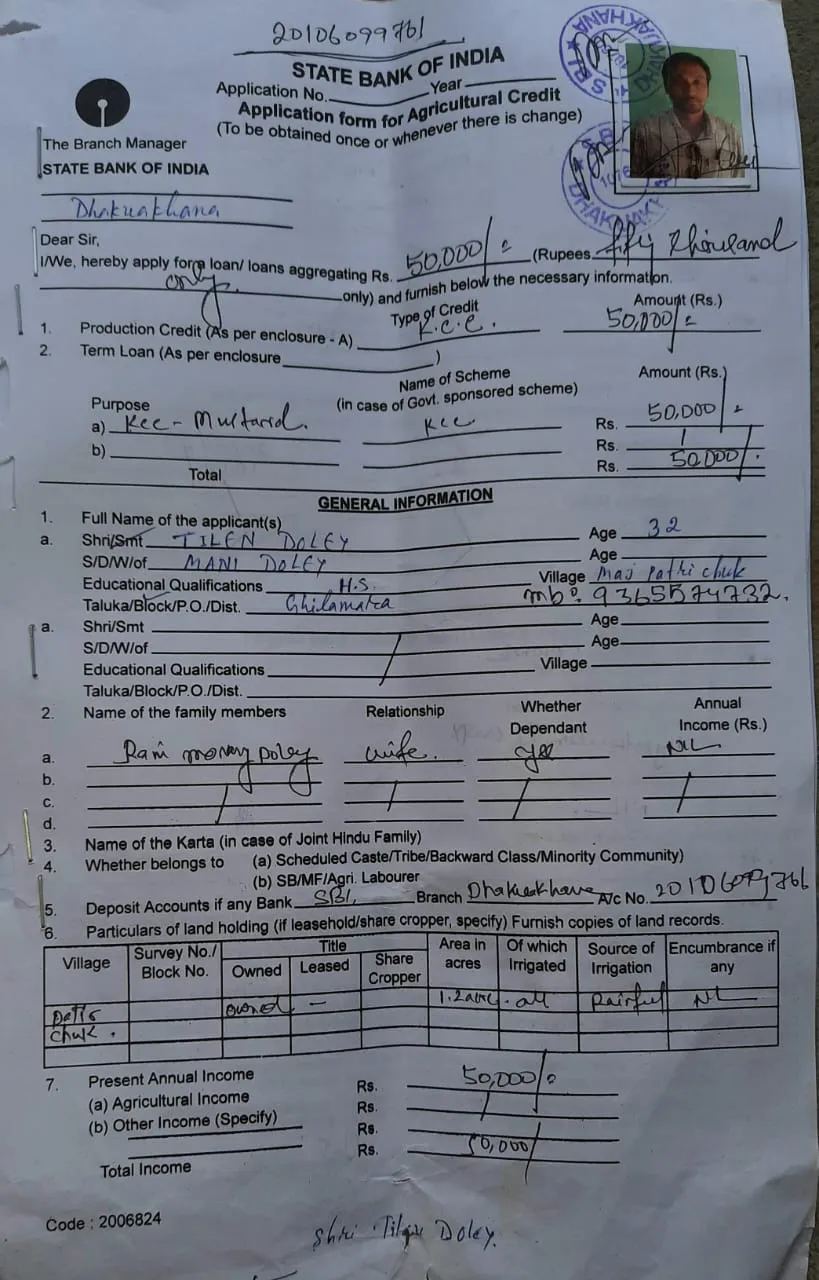 20106099761
STATE BANK OF INDIA
Application No. Year
Application form for Agricultural Credit
(To be obtained once or whenever there is change)
The Branch Manager
STATE BANK OF INDIA
Dhakuakhana
Dear Sir,
I/We, hereby apply for a loan/ loans aggregating Rs. 50,000/- (Rupees fifty Thousand
only only) and furnish below the necessary information.
Type of Credit Amount (Rs.)
1. Production Credit (As per enclosure - A) K.C.C. 50,000/-
2. Term Loan (As per enclosure )
Purpose Name of Scheme Amount (Rs.)
(in case of Govt. sponsored scheme)
a) Kcc - Mustard. Kcc Rs. 50,000/-
b) Rs.
Total Rs. 50,000/-
GENERAL INFORMATION
1. Full Name of the applicant(s)
a. Shri/Smt TILEN DOLEY Age 32
S/D/W/of MANI DOLEY Age
Educational Qualifications H.S. Village Maj Pathi chuk
Taluka/Block/P.O./Dist. Ghilamara mbo. 9365574732.
a. Shri/Smt Age
S/D/W/of Age
Educational Qualifications Village
Taluka/Block/P.O./Dist.
2. Name of the family members Relationship Whether Dependant Annual Income (Rs.)
a. Doley wife. yes NIL
b.
c.
d.
3. Name of the Karta (in case of Joint Hindu Family)
4. Whether belongs to (a) Scheduled Caste/Tribe/Backward Class/Minority Community)
(b) SB/MF/Agri. Labourer
5. Deposit Accounts if any Bank SBI, Branch Dhakuakhana A/c No. 20106099766
6. Particulars of land holding (if leasehold/share cropper, specify) Furnish copies of land records.
Village Survey No./ Block No. Title Area in acres Of which Irrigated Source of Irrigation Encumbrance if any
Owned Leased Share Cropper
owned - all Rainful NIL
chuk.
7. Present Annual Income Rs. 50,000/-
(a) Agricultural Income Rs.
(b) Other Income (Specify) Rs.
Total Income Rs. 50,000/
Code : 2006824
Shri Tilen Doley.